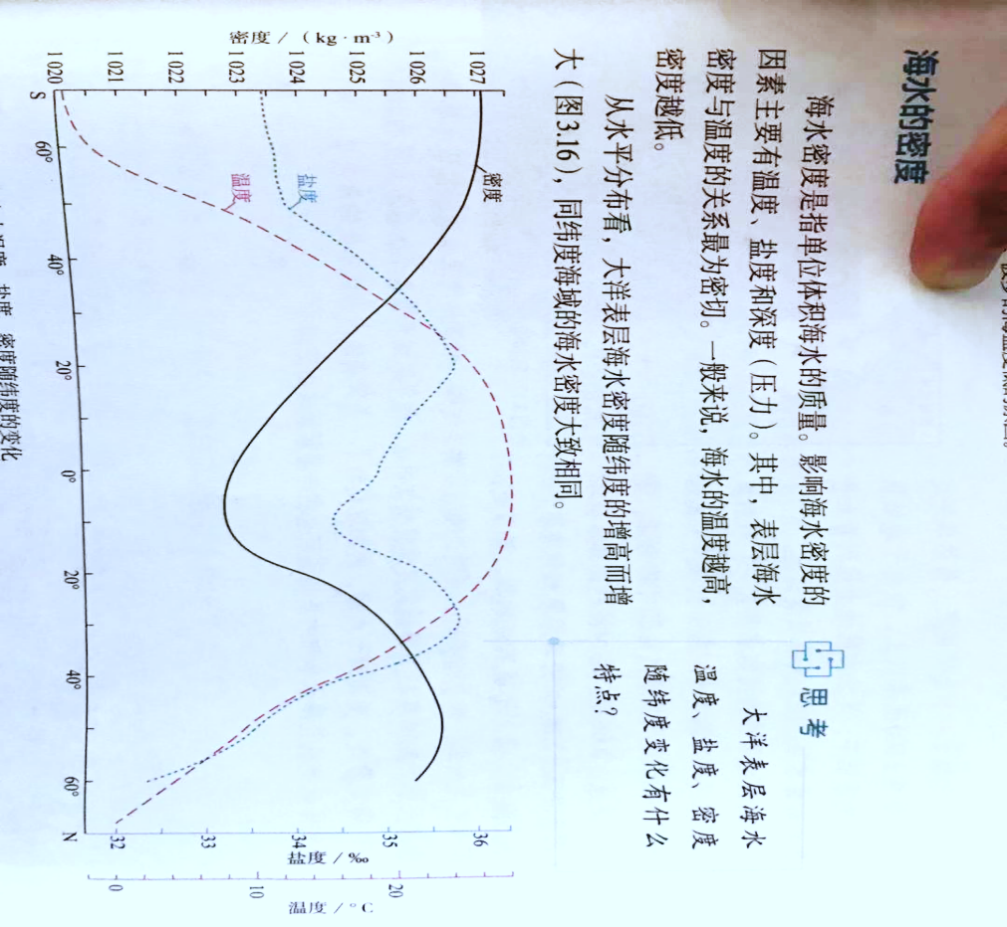 海水的密度
海水密度是指单位体积海水的质量。影响海水密度的
因素主要有温度、盐度和深度（压力）。其中，表层海水
密度与温度的关系最为密切。一般来说，海水的温度越高，
密度越低。
从水平分布看，大洋表层海水密度随纬度的增高而增
大（图3.16），同纬度海域的海水密度大致相同。
思考
大洋表层海水
温度、盐度、密度
随纬度变化有什么
特点？
密度 /（kg · m⁻³）
1 027
1 026
1 025
1 024
1 023
1 022
1 021
1 020
密度
盐度
温度
S 60° 40° 20° 0° 20° 40° 60° N
36
35
34
33
32
盐度 / ‰
20
10
0
温度 / °C
盐度、密度随纬度的变化